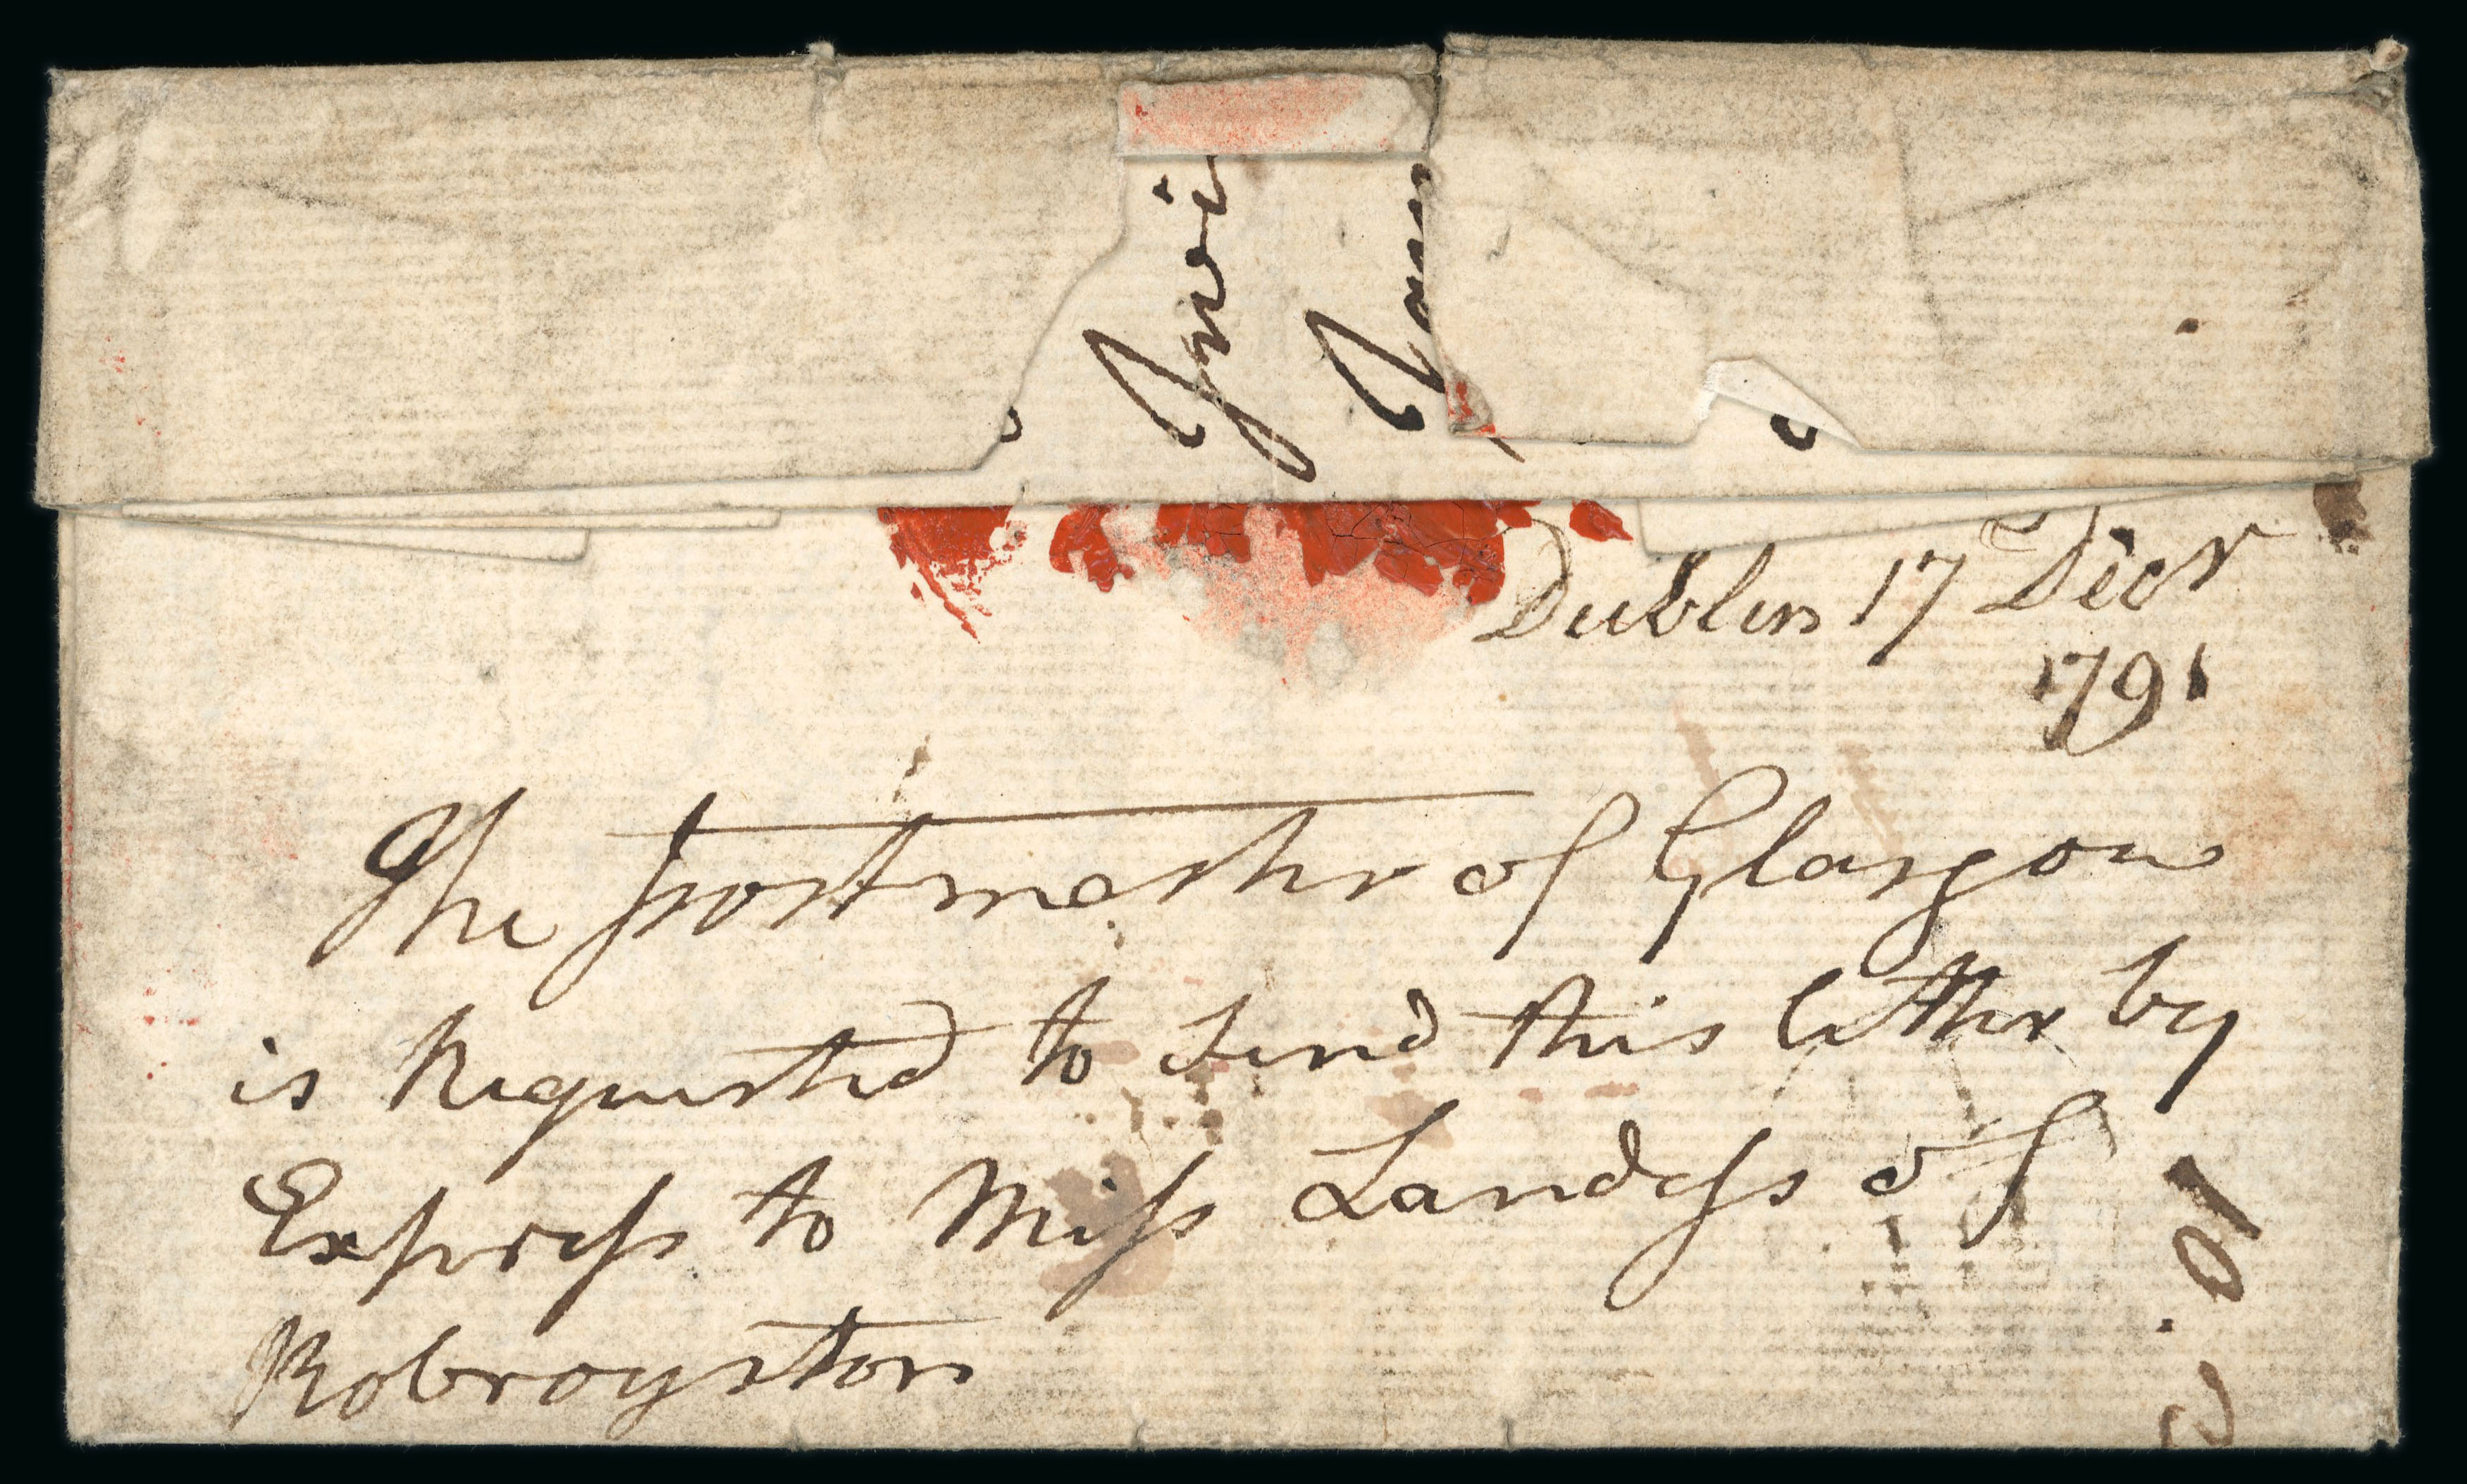 Dublin 17 Decr
1791
The postmaster of Glasgow
is Requested to Send this letter by
Express to Miss Landess of
Robroyston
10